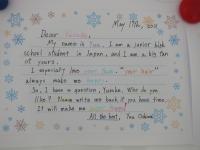 May 17th, 2021
Dear
My name is Yua. I am a junior high
school student in Japan, and I am a big fan
of yours.
I especially love your "hair"
always make me happy.
So, I have a question, Yuzuka. Who do you
like? Please write me back if you have time.
It will make me
All the best, Yua